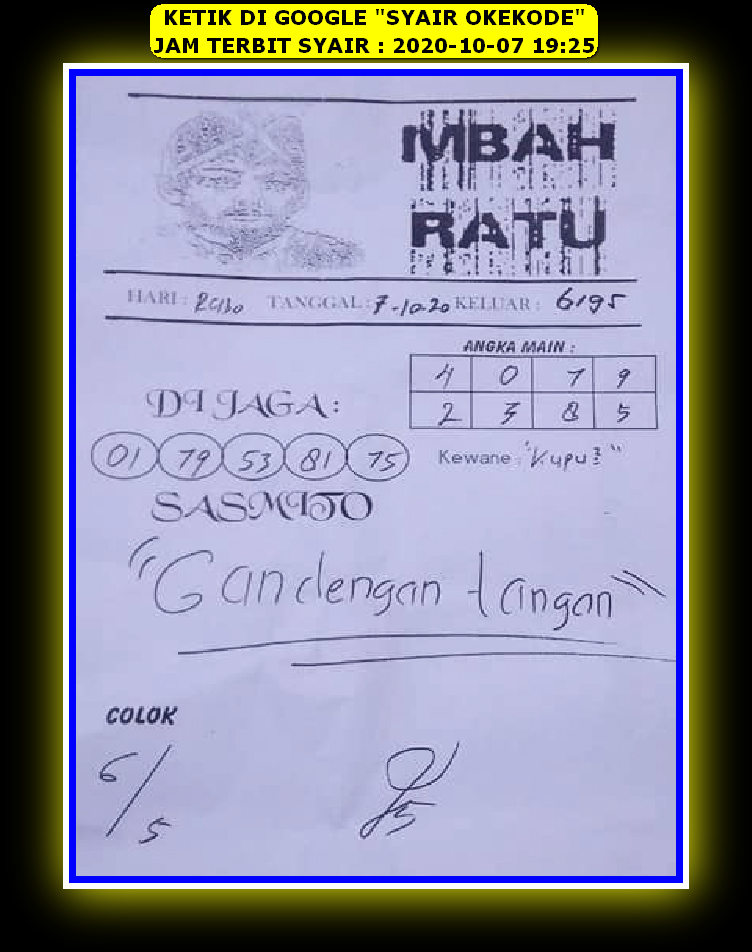 KETIK DI GOOGLE "SYAIR OKEKODE"
JAM TERBIT SYAIR : 2020-10-07 19:25
MBAH
RATU
HARI : Rabo TANGGAL : 7-10-20 KELUAR : 6195
ANGKA MAIN :
4 0 7 9
2 3 8 5
DI JAGA :
01 79 53 81 75
Kewane : "Kupu2"
SASMITO
"Gandengan tangan"
COLOK
6/5